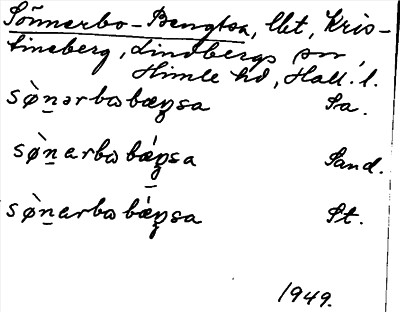 Sönnerbo-Bengtsa, lht, Kris-
tineberg, Lindbergs sn,
Himle hd, Hall. l.
sø̀nərbωbæŋsa Sa.
sø̀narbωbǽŋsa Sand.
sø̀narbωbǽŋsa St.
1949.